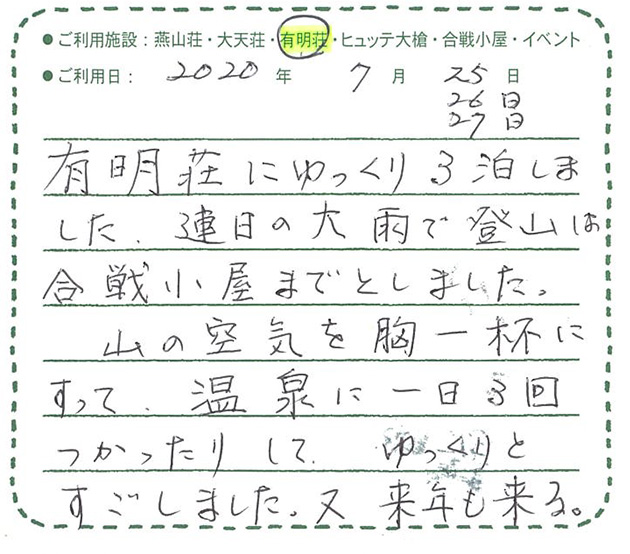 ●ご利用施設：燕山荘・大天荘・有明荘・ヒュッテ大槍・合戦小屋・イベント
●ご利用日： 2020 年 7 月 25 日
26日
27日
有明荘にゆっくり3泊しま
した。連日の大雨で登山は
合戦小屋までとしました。
山の空気を胸一杯に
すって、温泉に一日3回
つかったりして、ゆっくりと
すごしました。又来年も来る。